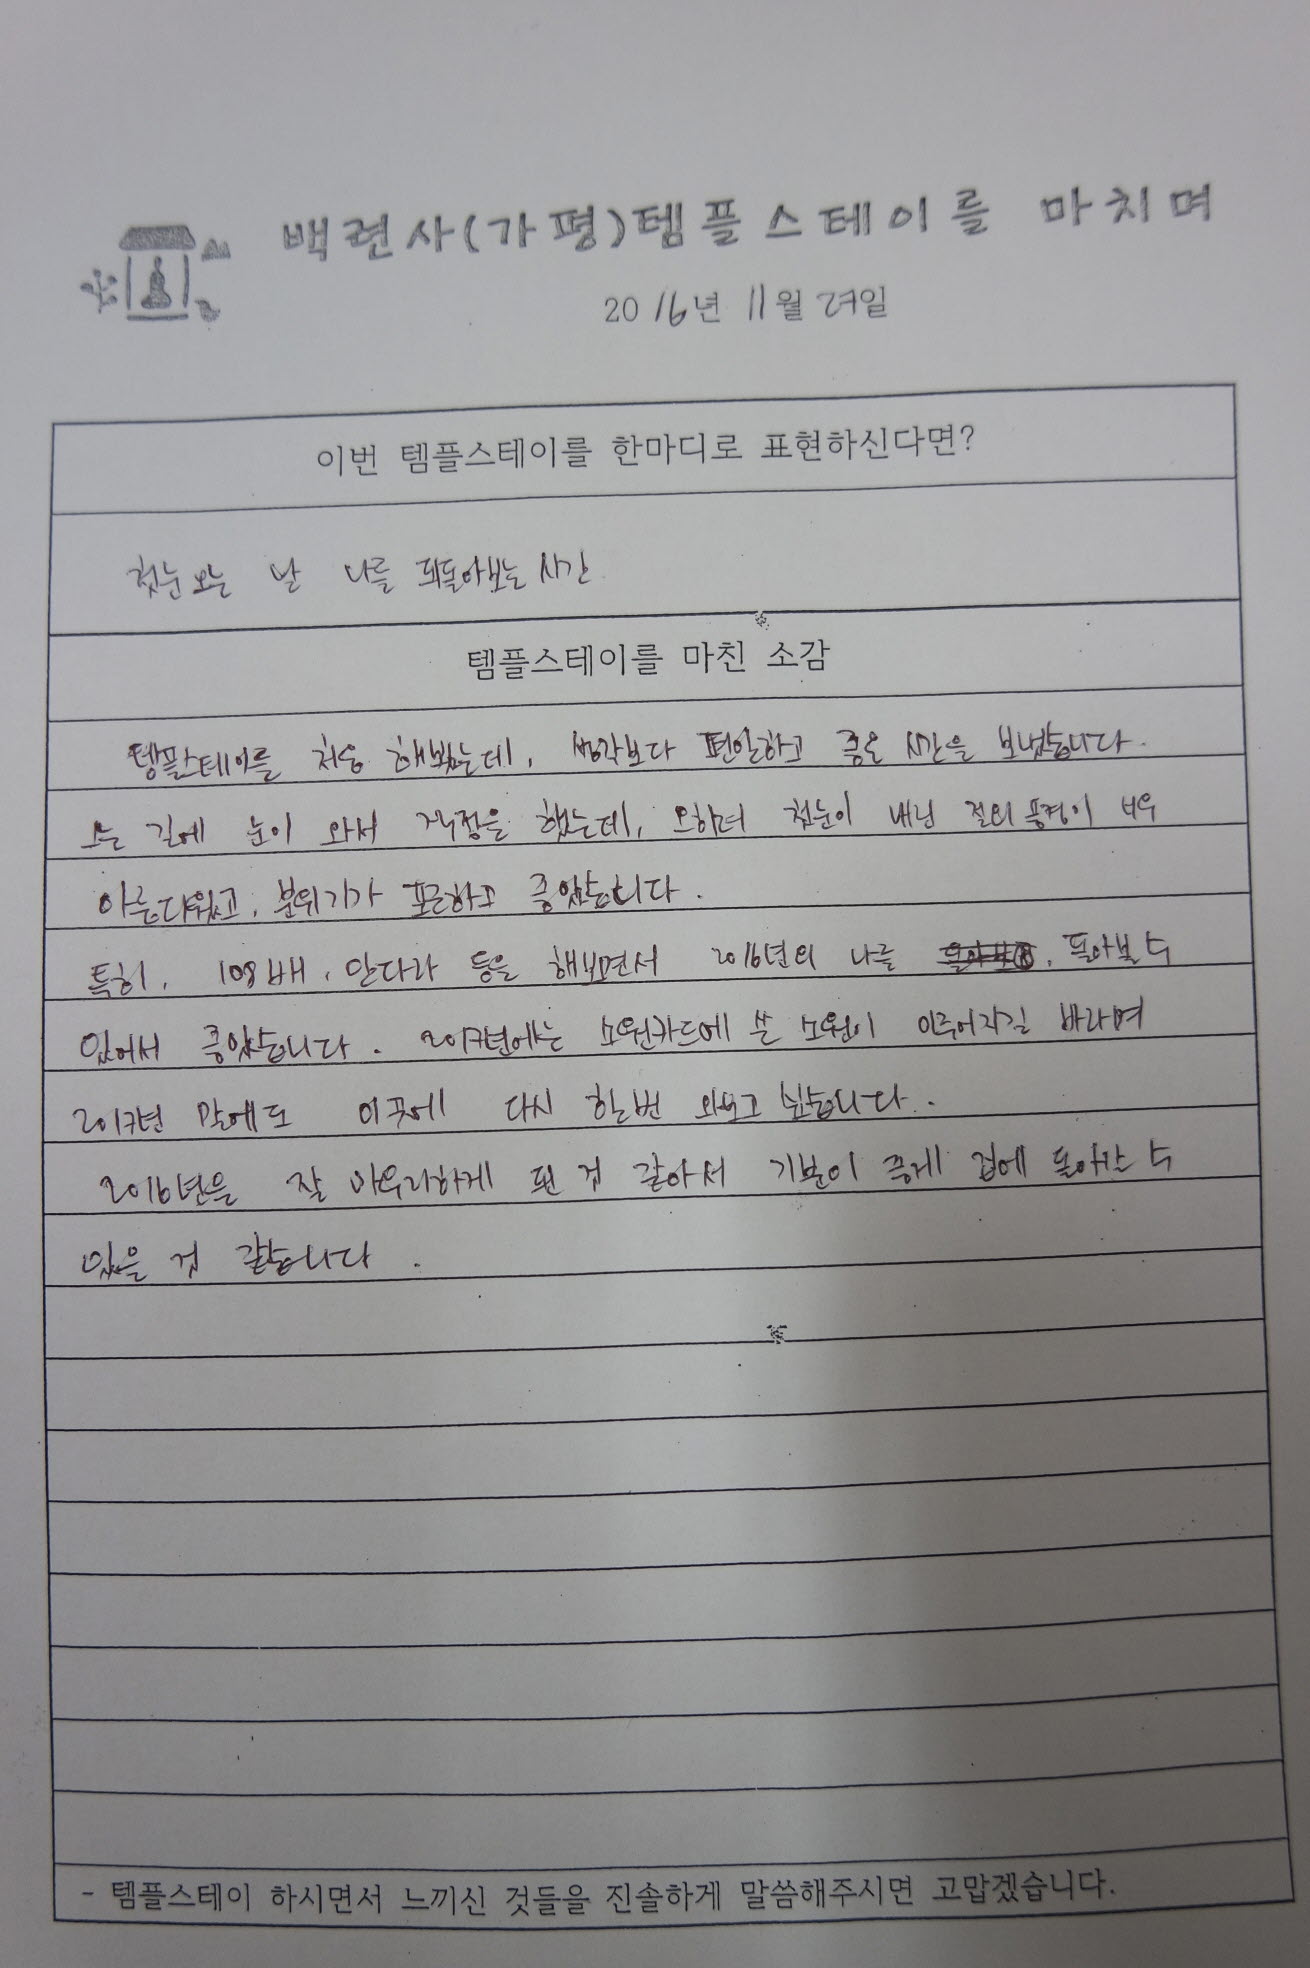 백련사(가평)템플스테이를 마치며
2016년 11월 27일
이번 템플스테이를 한마디로 표현하신다면?
첫눈오는 날 나를 되돌아보는 시간
템플스테이를 마친 소감
템플스테이를 처음 해봤는데, 생각보다 편안하고 좋은 시간을 보냈습니다.
오는 길에 눈이 와서 걱정을 했는데, 오히려 첫눈이 내린 절의 풍경이 너무
아름다웠고, 분위기가 포근하고 좋았습니다.
특히, 108배, 만다라 등을 해보면서 2016년의 나를 돌아볼 수
있어서 좋았습니다. 2017년에는 소원카드에 쓴 소원이 이루어지길 바라며
2017년 말에도 이곳에 다시 한번 와보고 싶습니다.
2016년을 잘 마무리하게 된 것 같아서 기분이 좋게 집에 돌아갈 수
있을 것 같습니다.
- 템플스테이 하시면서 느끼신 것들을 진솔하게 말씀해주시면 고맙겠습니다.